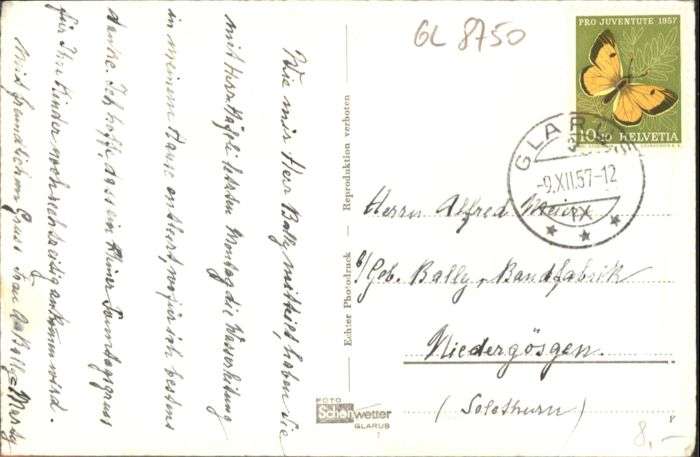 GL 8750
PRO JUVENTUTE 1957
10+10 HELVETIA
GLARUS
-9.XII.57-12
IX
Wie mir Herr Bally mitteilt haben Sie
mit Herrn letzten Montag die Wasserleitung
in meinem Hause entstört, wofür ich bestens
danke. Ich hoffe, dass ein kleiner Samstagsgruss
für Ihre Kinder noch rechtzeitig ankommen wird.
Mit freundlichem Gruss Frau
Herrn Alfred Meier
b/Geb. Bally, Bandfabrik
Niedergösgen.
(Solothurn)
Echter Photodruck — Reproduktion verboten
FOTO
Schönwetter
GLARUS
8,-